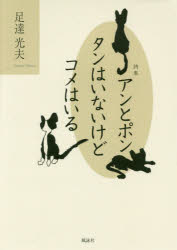 詩集
アンとポン
タンはいないけど
コメはいる
足達光夫
風詠社